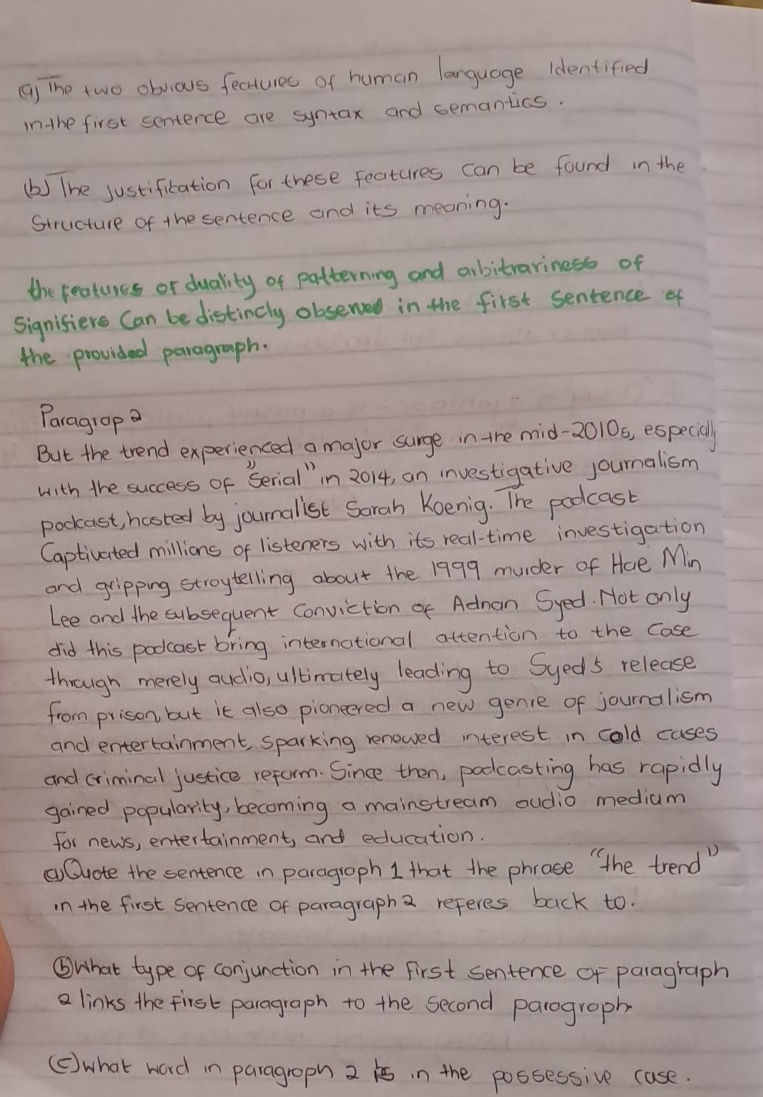 (a) The two obvious features of human language identified
in the first sentence are syntax and semantics.
(b) The justification for these features can be found in the
Structure of the sentence and its meaning.
the features of duality of patterning and arbitrariness of
Signifiers Can be distincly observed in the first sentence of
the provided paragraph.
Paragrap 2
But the trend experienced a major surge in the mid-2010s, especially
with the success of "Serial" in 2014, an investigative journalism
podcast, hosted by journalist Sarah Koenig. The podcast
Captivated millions of listeners with its real-time investigation
and gripping stroytelling about the 1999 murder of Hae Min
Lee and the subsequent Conviction of Adnan Syed. Not only
did this podcast bring international attention to the Case
through merely audio, ultimately leading to Syed's release
from prison, but it also pioneered a new genre of journalism
and entertainment, sparking renewed interest in cold cases
and criminal justice reform. Since then, podcasting has rapidly
gained popularity, becoming a mainstream audio medium
for news, entertainment, and education.
(a) Quote the sentence in paragraph 1 that the phrase "the trend"
in the first sentence of paragraph 2 referes back to.
(b) What type of conjunction in the first sentence of paragraph
2 links the first paragraph to the second paragraph
(c) what word in paragraph 2 is in the possessive case.